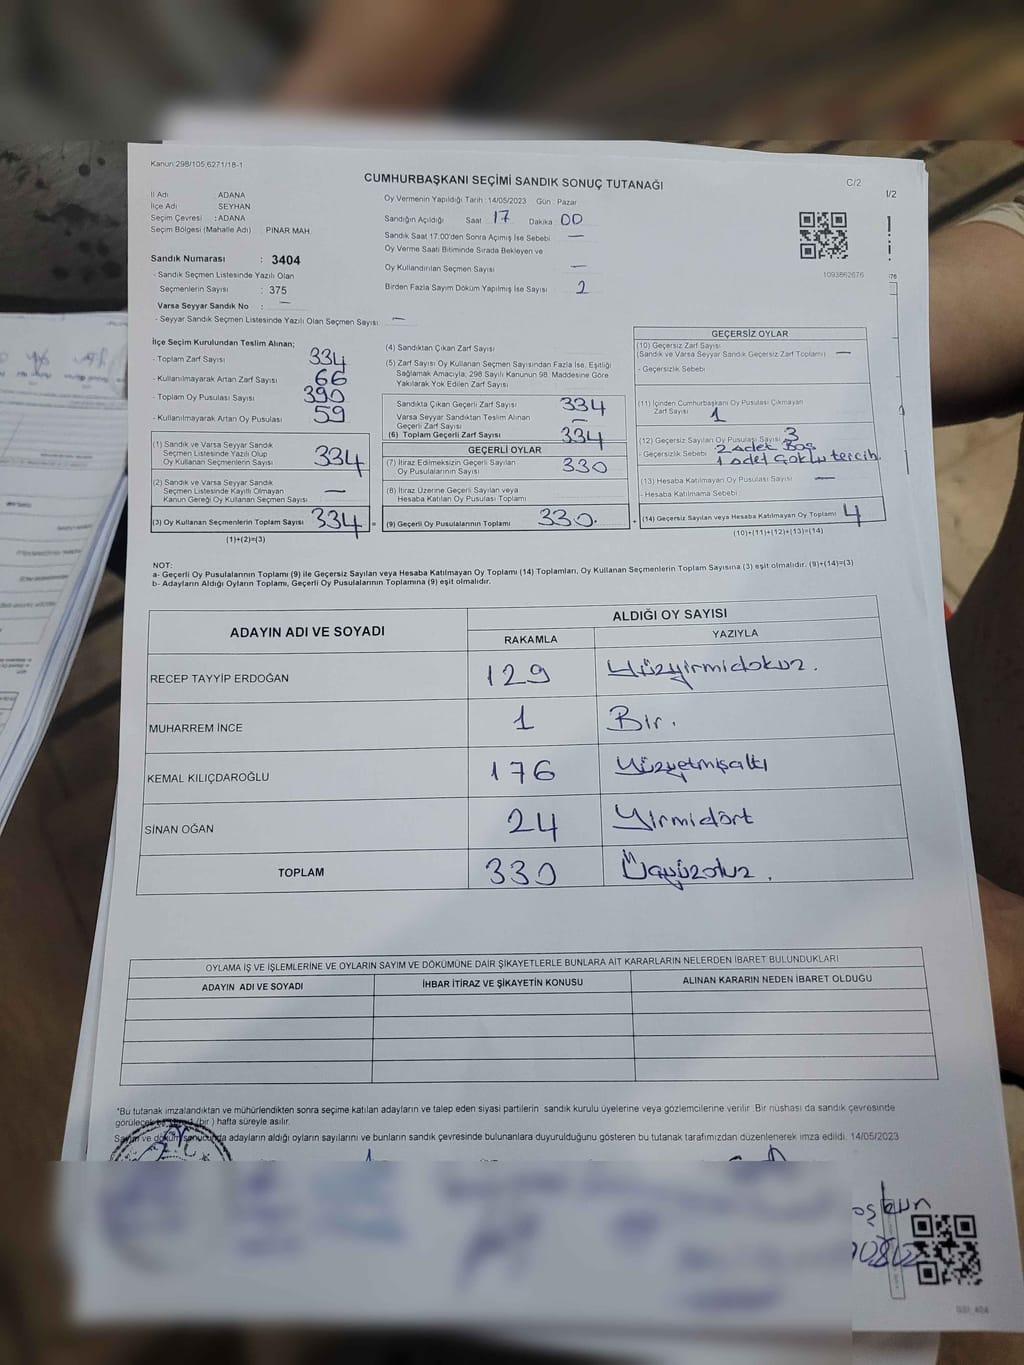 Kanun:298/105,6271/18-1
CUMHURBAŞKANI SEÇİMİ SANDIK SONUÇ TUTANAĞI
C/2
1/2
İl Adı ADANA
İlçe Adı SEYHAN
Seçim Çevresi : ADANA
Seçim Bölgesi (Mahalle Adı) PINAR MAH.
Sandık Numarası : 3404
- Sandık Seçmen Listesinde Yazılı Olan
Seçmenlerin Sayısı : 375
Varsa Seyyar Sandık No : —
- Seyyar Sandık Seçmen Listesinde Yazılı Olan Seçmen Sayısı —
Oy Vermenin Yapıldığı Tarih : 14/05/2023 Gün : Pazar
Sandığın Açıldığı Saat 17 Dakika 00
Sandık Saat 17.00'den Sonra Açımış İse Sebebi —
Oy Verme Saati Bitiminde Sırada Bekleyen ve
Oy Kullandırılan Seçmen Sayısı —
Birden Fazla Sayım Döküm Yapılmış İse Sayısı
1093862676
İlçe Seçim Kurulundan Teslim Alınan;
- Toplam Zarf Sayısı 334
- Kullanılmayarak Artan Zarf Sayısı 66
- Toplam Oy Pusulası Sayısı 390
- Kullanılmayarak Artan Oy Pusulası 59
(1) Sandık ve Varsa Seyyar Sandık
Seçmen Listesinde Yazılı Olup
Oy Kullanan Seçmenlerin Sayısı 334
(2) Sandık ve Varsa Seyyar Sandık
Seçmen Listesinde Kayıtlı Olmayan
Kanun Gereği Oy Kullanan Seçmen Sayısı —
(3) Oy Kullanan Seçmenlerin Toplam Sayısı 334
(1)+(2)=(3)
(4) Sandıktan Çıkan Zarf Sayısı
(5) Zarf Sayısı Oy Kullanan Seçmen Sayısından Fazla İse, Eşitliği
Sağlamak Amacıyla, 298 Sayılı Kanunun 98. Maddesine Göre
Yakılarak Yok Edilen Zarf Sayısı
Sandıkta Çıkan Geçerli Zarf Sayısı 334
Varsa Seyyar Sandıktan Teslim Alınan
Geçerli Zarf Sayısı —
(6) Toplam Geçerli Zarf Sayısı 334
GEÇERLİ OYLAR
(7) İtiraz Edilmeksizin Geçerli Sayılan
Oy Pusulalarının Sayısı 330
(8) İtiraz Üzerine Geçerli Sayılan veya
Hesaba Katılan Oy Pusulası Toplamı
(9) Geçerli Oy Pusulalarının Toplamı 330.
GEÇERSİZ OYLAR
(10) Geçersiz Zarf Sayısı
(Sandık ve Varsa Seyyar Sandık Geçersiz Zarf Toplamı) —
- Geçersizlik Sebebi
(11) İçinden Cumhurbaşkanı Oy Pusulası Çıkmayan
Zarf Sayısı 1
(12) Geçersiz Sayılan Oy Pusulası Sayısı 3
- Geçersizlik Sebebi 2 adet Boş
1 adet Çoklu tercih.
(13) Hesaba Katılmayan Oy Pusulası Sayısı —
- Hesaba Katılmama Sebebi
(14) Geçersiz Sayılan veya Hesaba Katılmayan Oy Toplamı 4
(10)+(11)+(12)+(13)=(14)
NOT:
a- Geçerli Oy Pusulalarının Toplamı (9) ile Geçersiz Sayılan veya Hesaba Katılmayan Oy Toplamı (14) Toplamları, Oy Kullanan Seçmenlerin Toplam Sayısına (3) eşit olmalıdır. (9)+(14)=(3)
b- Adayların Aldığı Oyların Toplamı, Geçerli Oy Pusulalarının Toplamına (9) eşit olmalıdır.
ADAYIN ADI VE SOYADI
ALDIĞI OY SAYISI
RAKAMLA YAZIYLA
RECEP TAYYİP ERDOĞAN 129 Yüzyirmidokuz.
MUHARREM İNCE 1 Bir.
KEMAL KILIÇDAROĞLU 176 Yüzyetmişaltı
SİNAN OĞAN 24 Yirmidört
TOPLAM 330 Üçyüzotuz.
OYLAMA İŞ VE İŞLEMLERİNE VE OYLARIN SAYIM VE DÖKÜMÜNE DAİR ŞİKAYETLERLE BUNLARA AİT KARARLARIN NELERDEN İBARET BULUNDUKLARI
ADAYIN ADI VE SOYADI İHBAR İTİRAZ VE ŞİKAYETİN KONUSU ALINAN KARARIN NEDEN İBARET OLDUĞU
*Bu tutanak imzalandıktan ve mühürlendikten sonra seçime katılan adayların ve talep eden siyasi partilerin sandık kurulu üyelerine veya gözlemcilerine verilir. Bir nüshası da sandık çevresinde
görülecek (bir) hafta süreyle asılır.
Sayım ve döküm sonucunda adayların aldığı oyların sayılarını ve bunların sandık çevresinde bulunanlara duyurulduğunu gösteren bu tutanak tarafımızdan düzenlenerek imza edildi. 14/05/2023